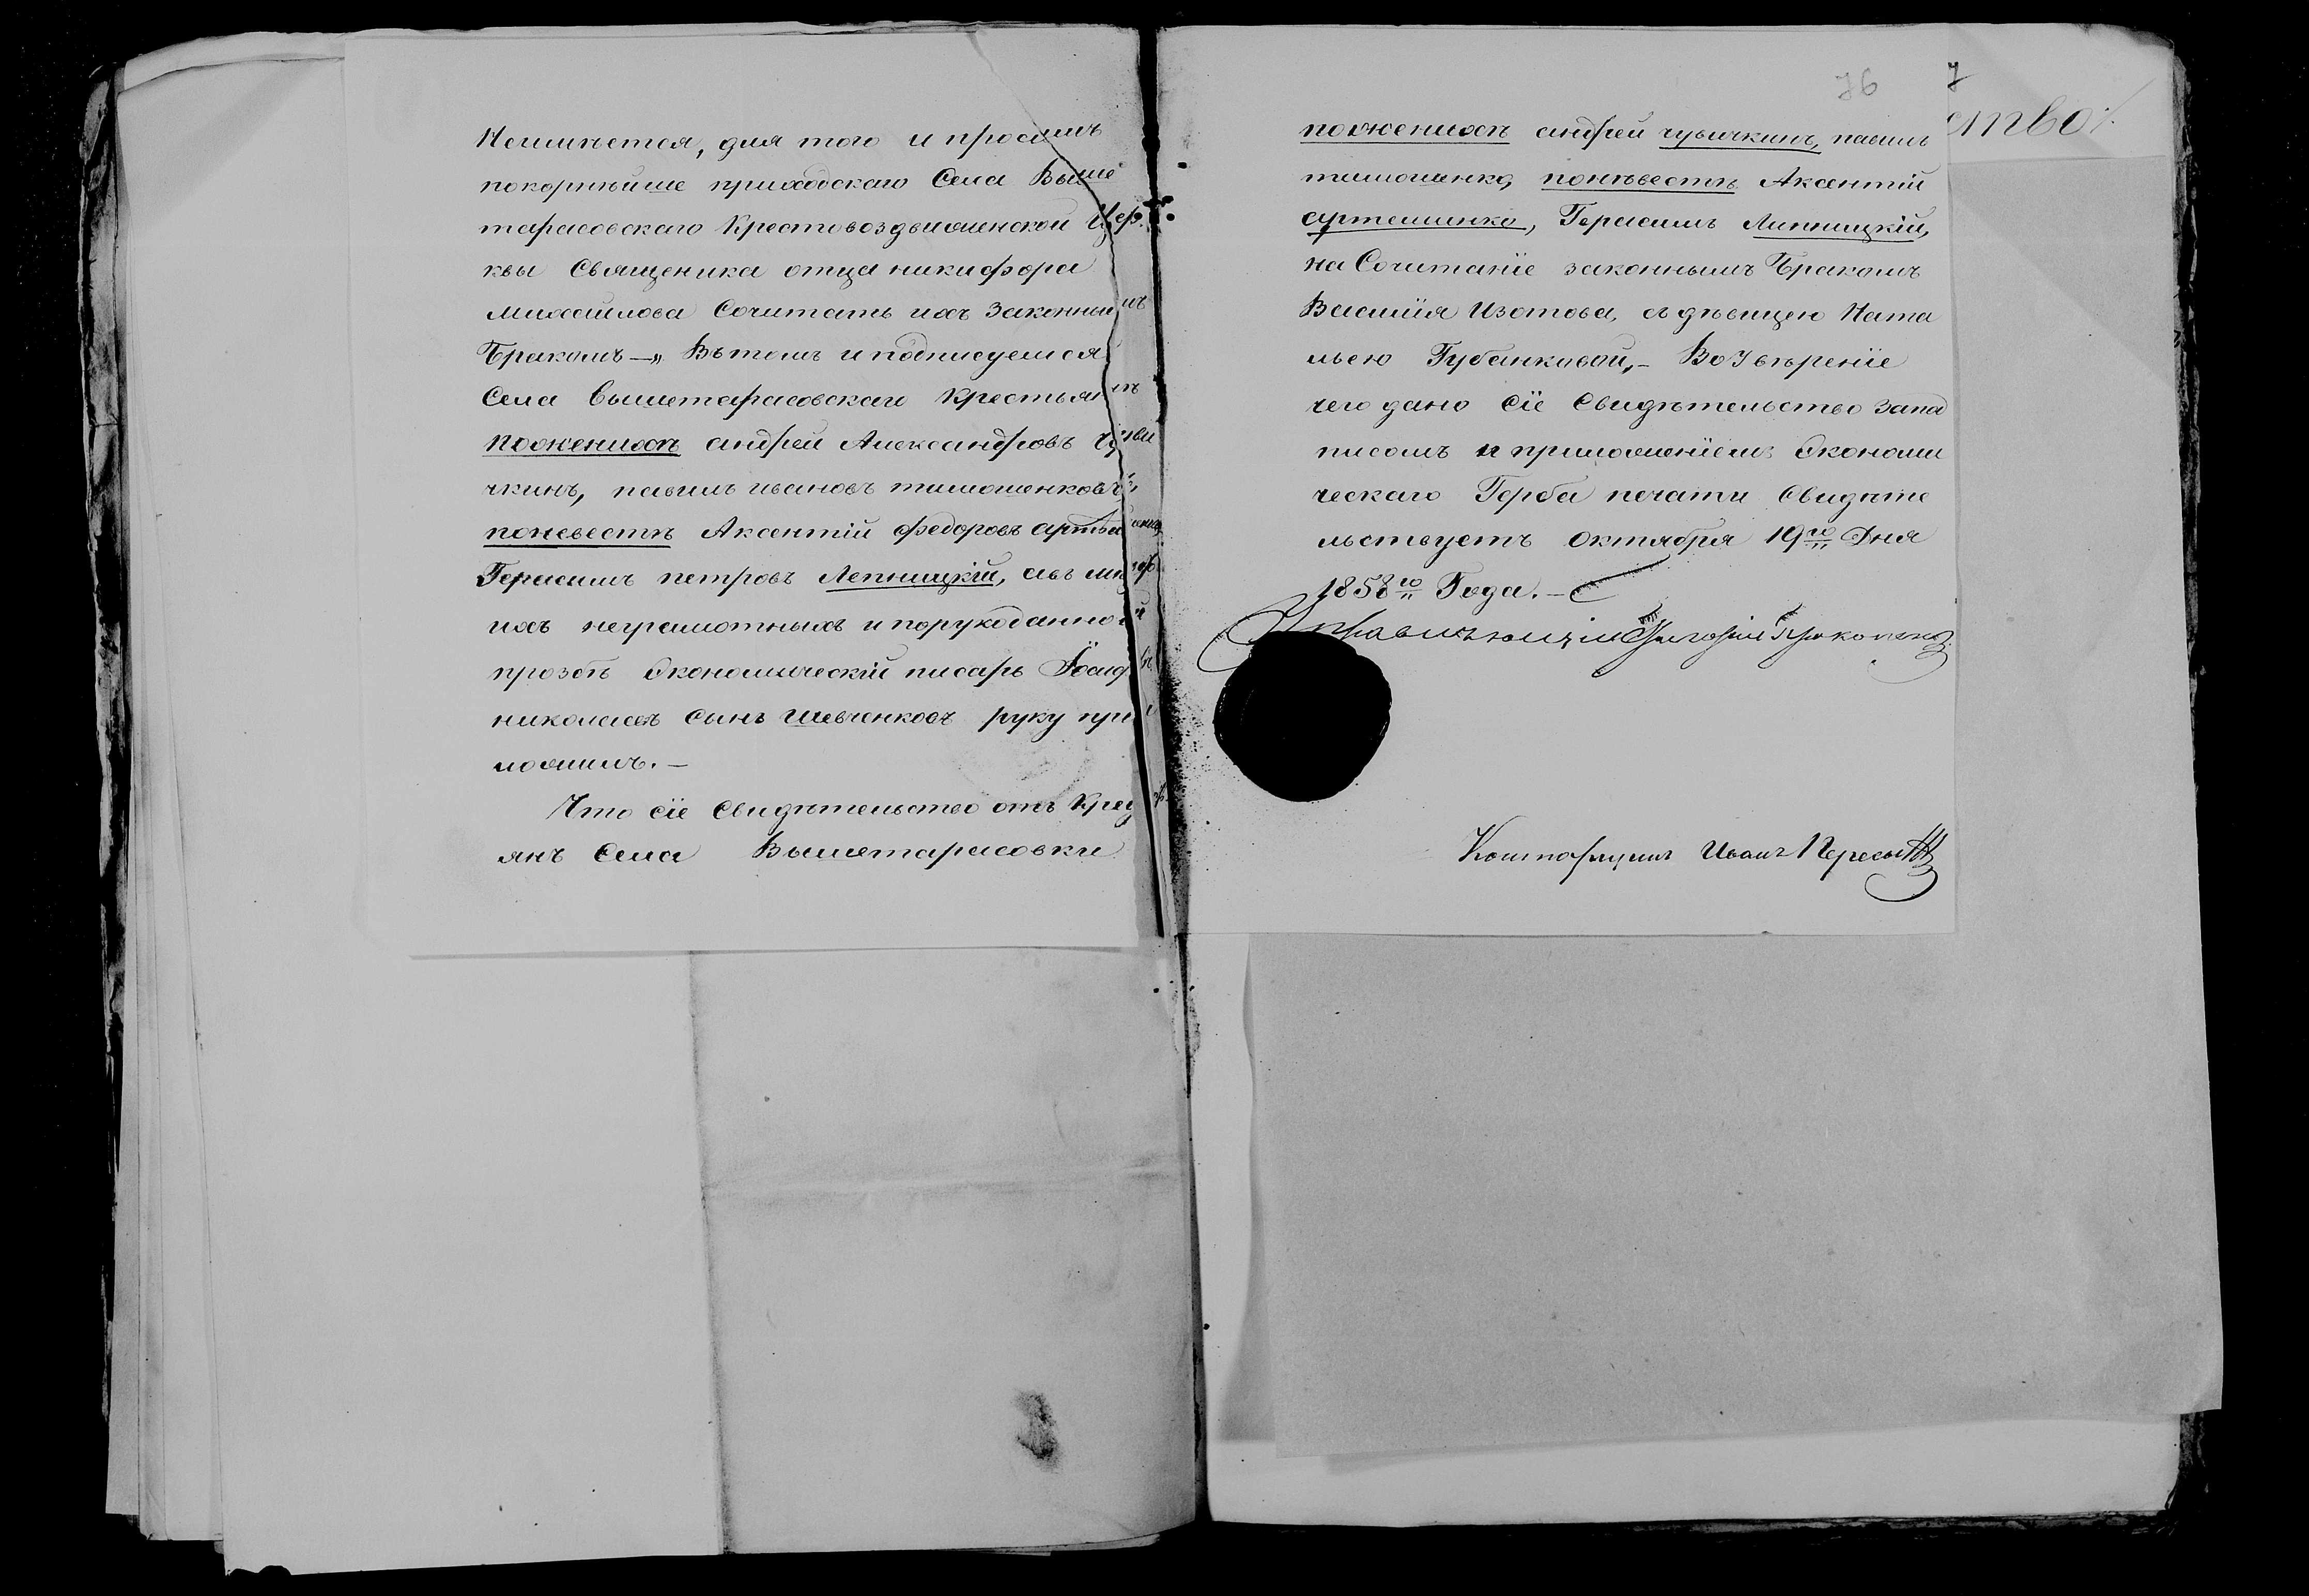 Неимѣется, для того и просимъ
покорнѣйше приходскаго Села Выше
тарасовскаго Крестовоздвиженской Цер
квы Священика отца никифора
михайлова Сочитать ихъ Законным
Бракомъ —„ Въ томъ и подписуемся
Села вышетарасовскаго Крестьян
поженихѣ андрей Александровъ Чуви
чкинъ, павилъ ивановъ тимошенковъ,
поневестѣ Аксентій федоровъ
Герасимъ петровъ Лепницкій, авъ
ихъ неграмотныхъ и порукоданной
прозбѣ Экономическій писарь Їосиф
николаевъ Сынъ шевченковъ руку при
ложилъ.—
Что сїе Свидѣтельство отъ Крес
янъ Села Вышетарасовки
76
поженихѣ андрей чувичкинъ, павилъ
тимошенко, понѣвестѣ Аксентій
артеминко, Герасимъ Липницкій,
на Сочитанїе законнымъ Бракомъ
Василїя Изотова, съ дѣвицею Ната
льею Губанковой,– Во Увѣренїе
чего дано сїе Свидѣтельство Запод
писомъ и приложенїемъ Економи
ческаго Герба печати Свидѣте
льствуетъ Октября 19го Дня
1858го Года.—
Управляющій Григорій
Конторщикъ Иванъ
ство